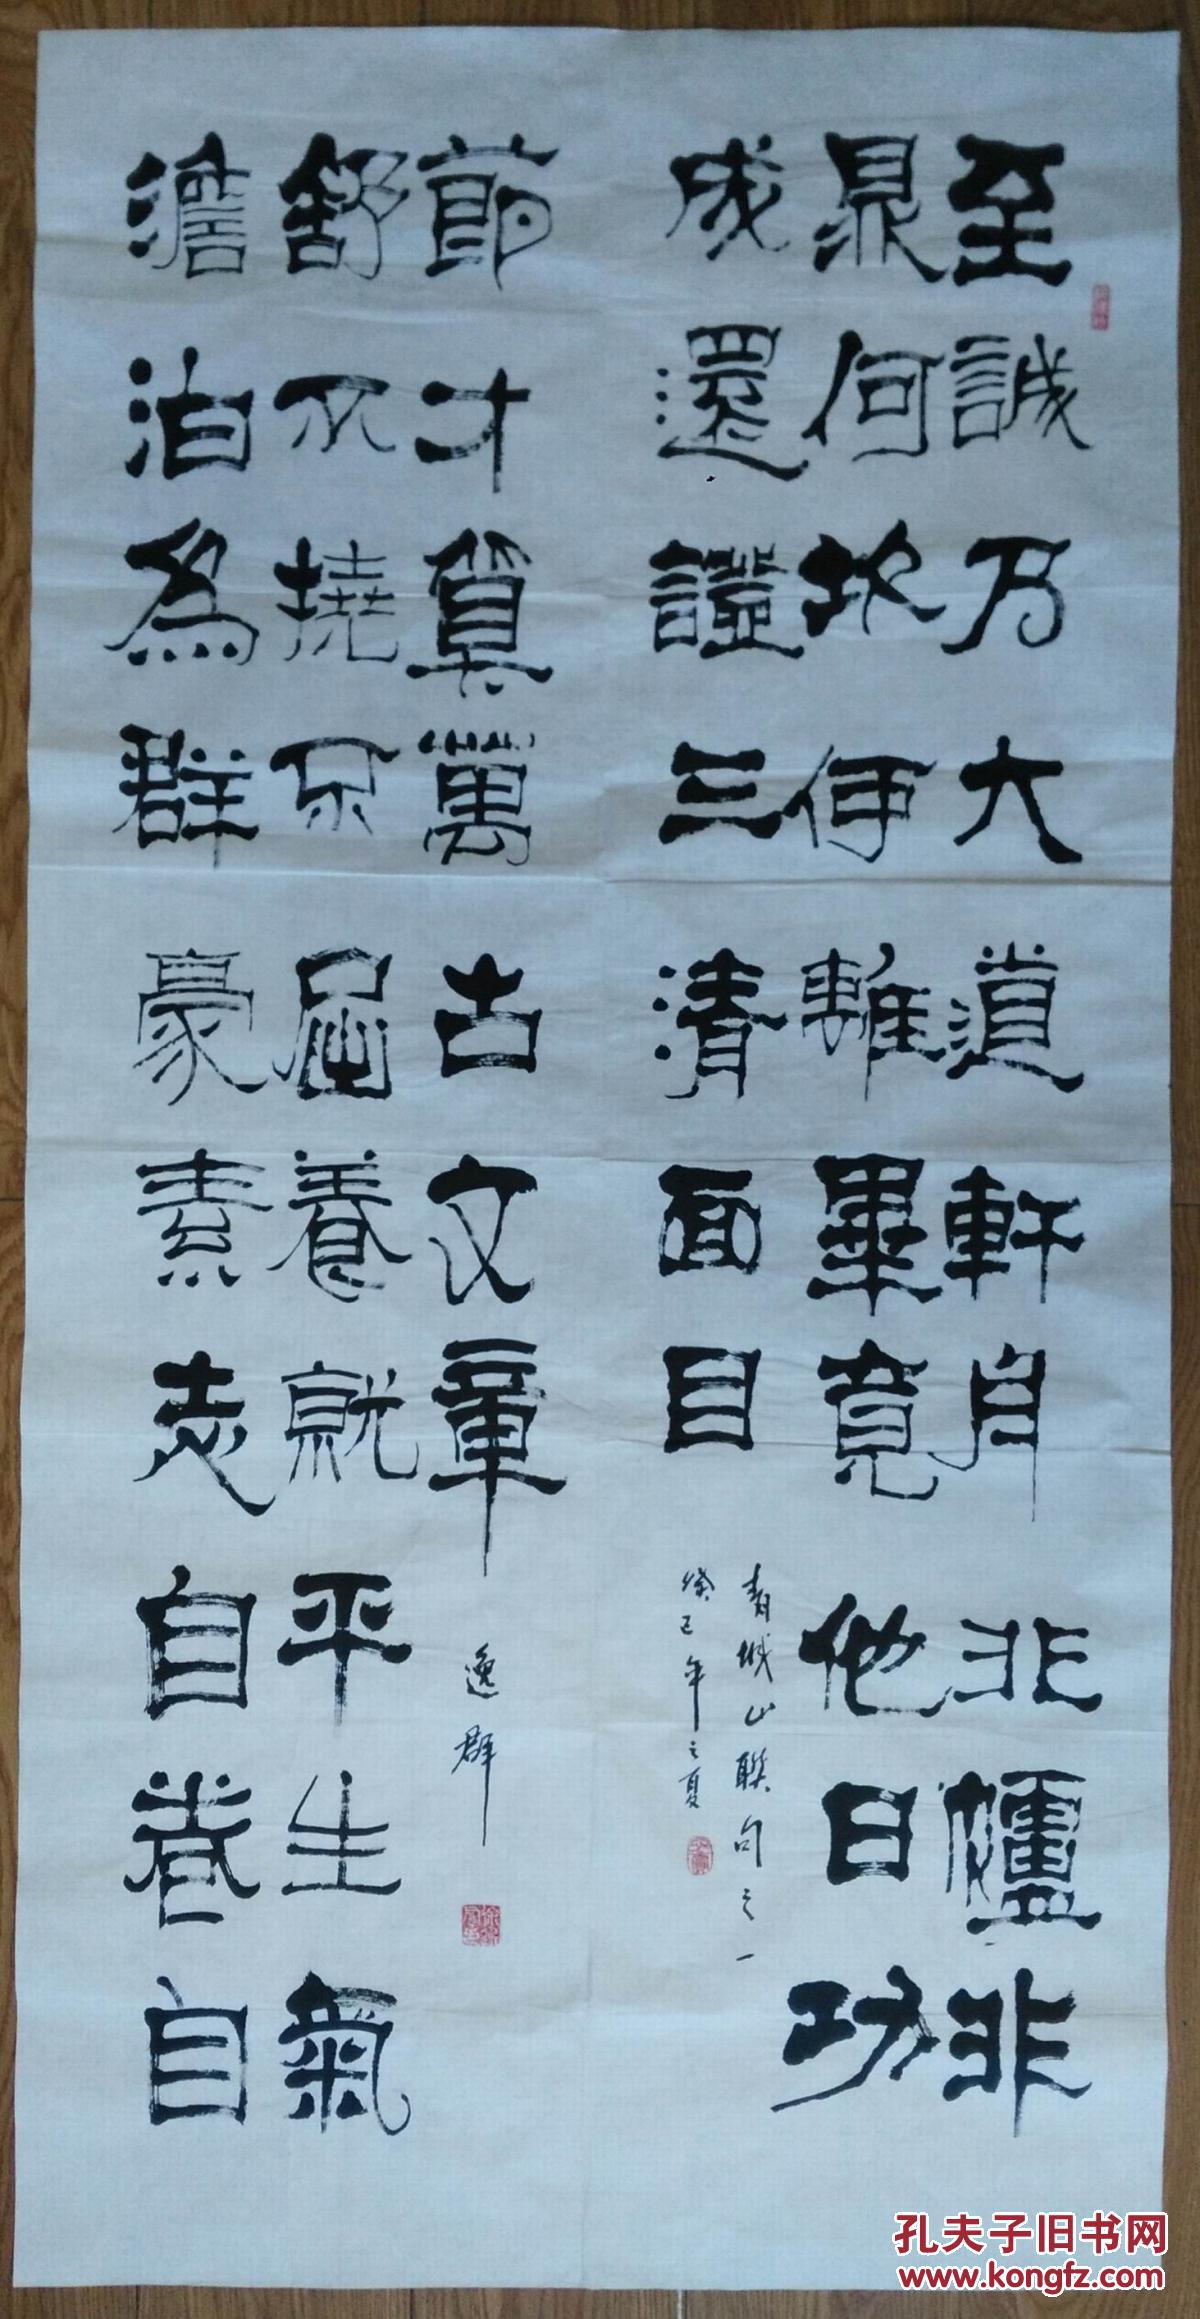 至誠乃大道軒月非爐非
鼎何坎何離畢竟他日功
成還證三清面目
青城山聯句之一
癸巳年之夏
澹泊為群豪素志自卷自
舒不撓不屈養就平生氣
節才算萬古文章
逸群
孔夫子旧书网
www.kongfz.com